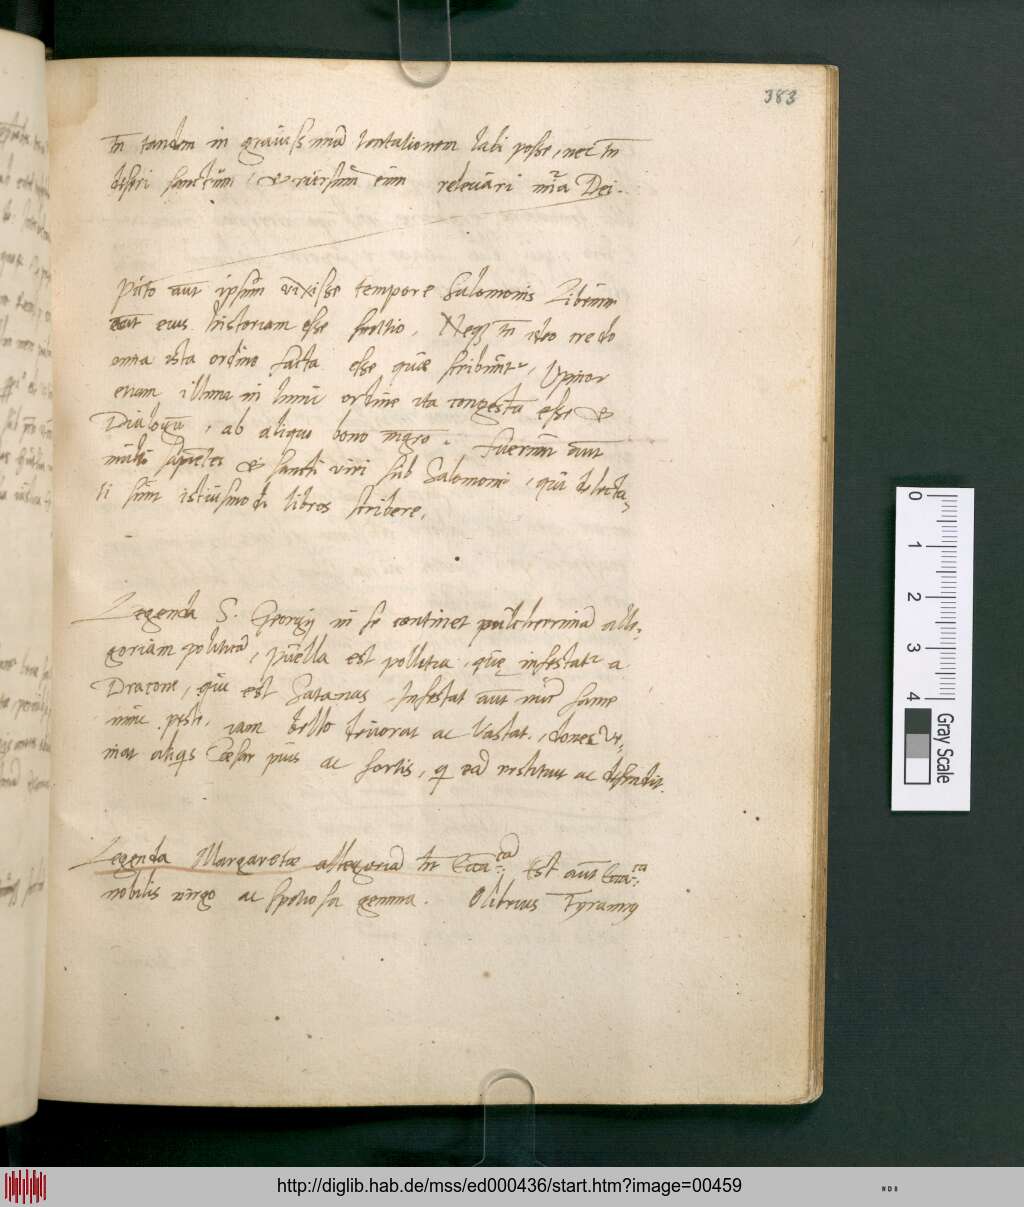 383
tñ tandem in grauissimã tentationem labi posse, nec tñ
deseri sanctũm, & rursũm eũm releuari mĩa Dei.
Puto aũt ipsũm vixisse tempore Salomonis
eius historiam esse Neq3 tñ ideo credo
omnia ista ordine facta esse quæ scribũntr, Opinor
enim illum in hunc ordinem ita congestũ esse &
Dialogũ, ab aliquo bono mgro. Fuerunt aũt
multi & sancti viri sub Salomone, qui delecta-
ti sũnt istiusmodi libros scribere.
Legenda S. Georgij in se continet pũlcherrimã alle-
goriam politicã, Pũella est pollitia, quę infestatr a
Dracone, qũi est Satanas. Infestat aũt nũc fame
nũnc peste, iam bello deuorat ac vastat, donec ve-
niat aliqũis Cæsar pius ac fortis, q eã restituit ac defendit.
Legenda Margaretæ allegoriã hẽt Eccaˢᵗⁱᶜã Est aũt Ecca
nobilis virgo ac speciosa gemma. Olibrius Tyrannꝰ
0
1
2
3
4
Gray Scale
http://diglib.hab.de/mss/ed000436/start.htm?image=00459